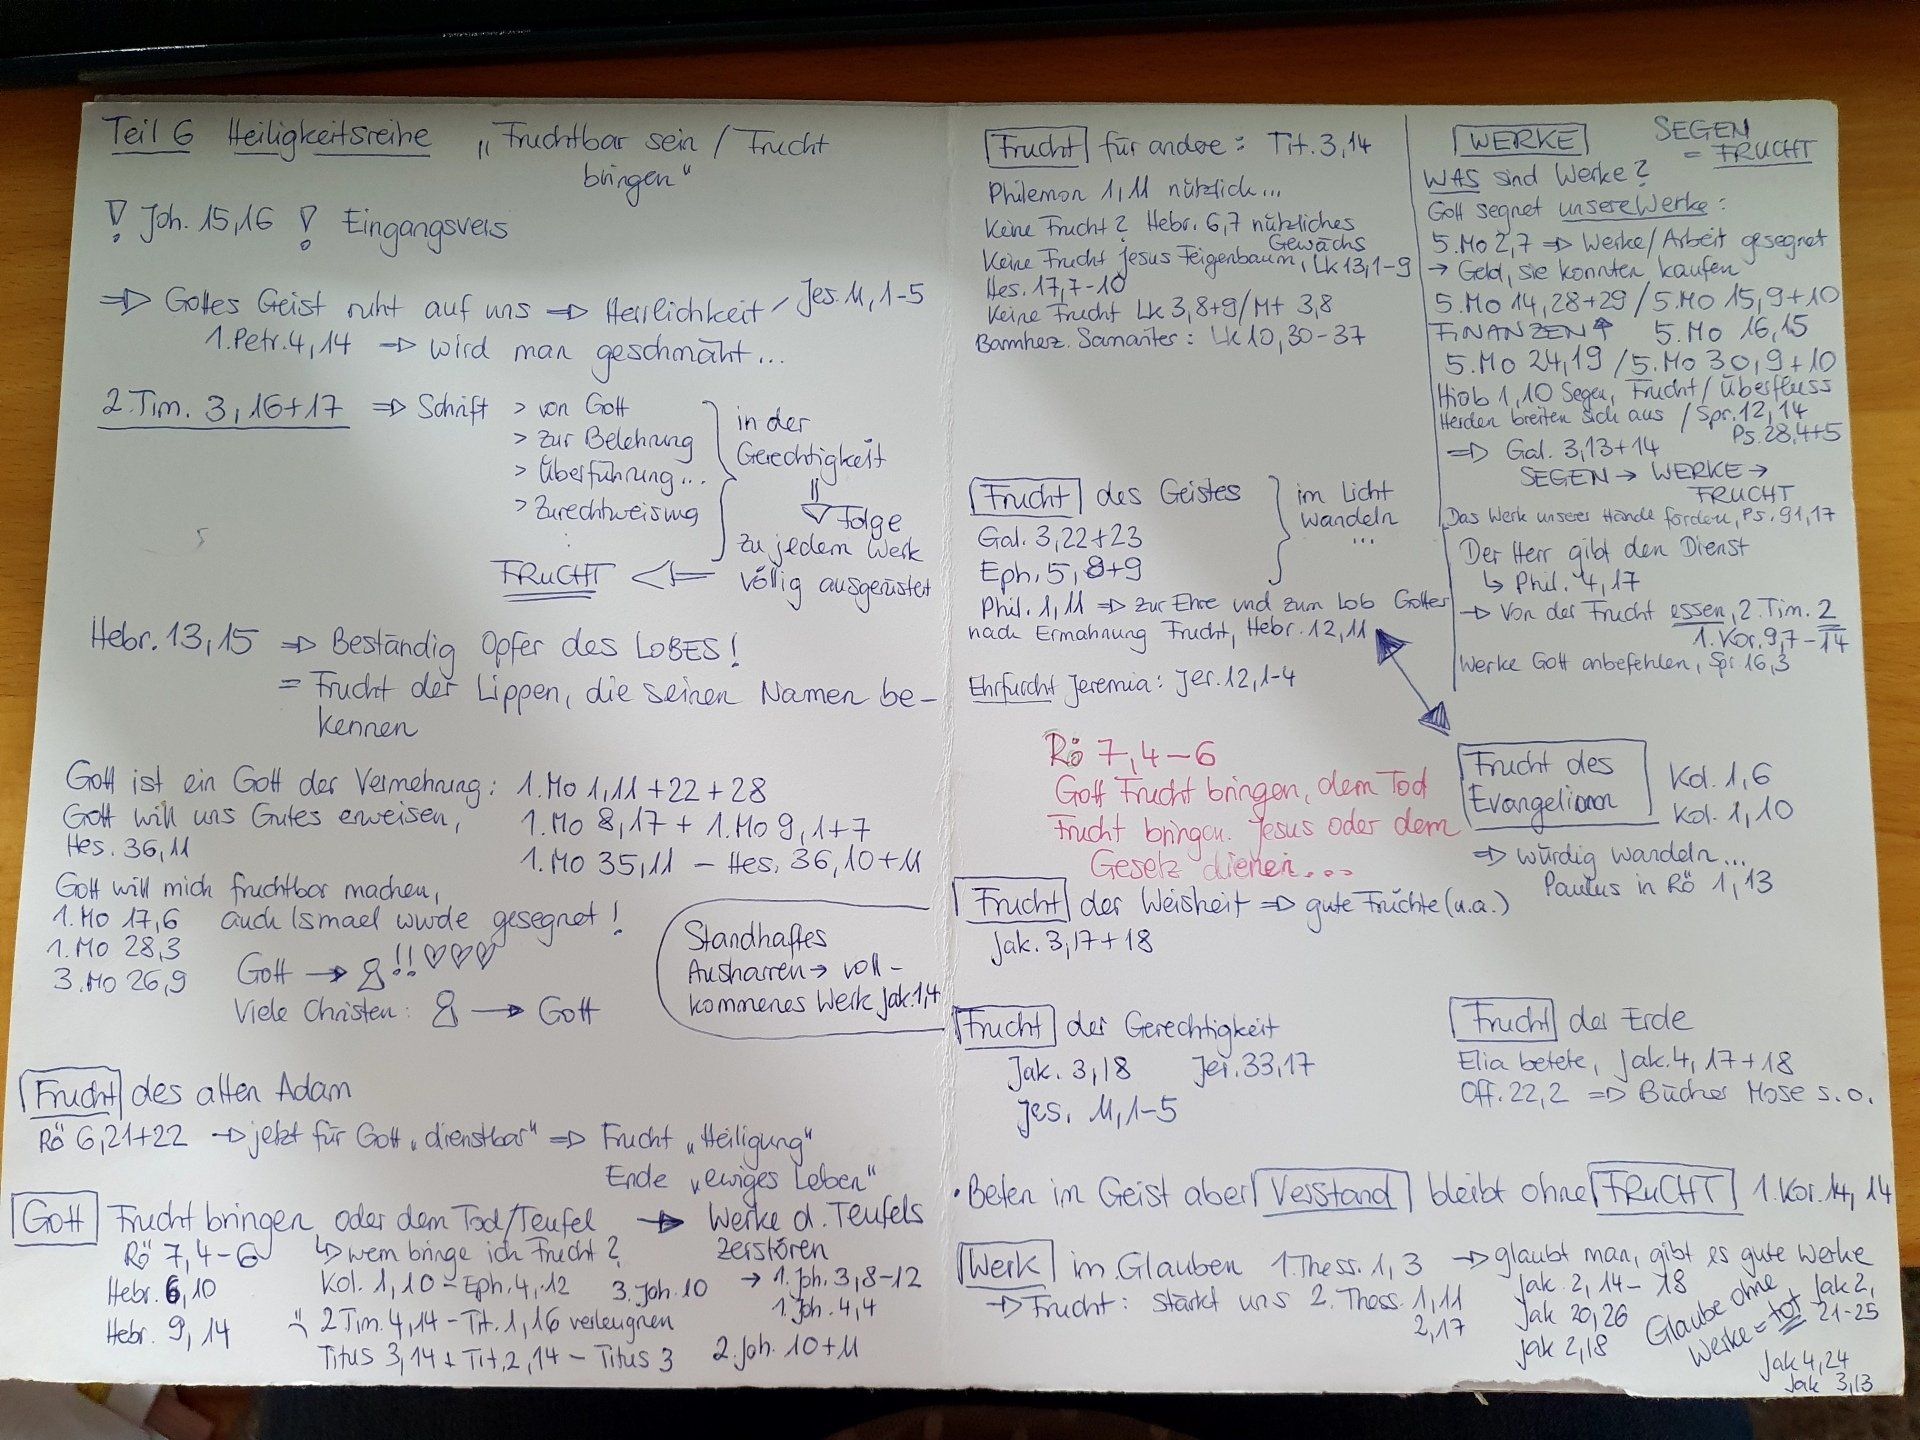 Teil 6 Heiligkeitsreihe „Fruchtbar sein / Frucht
bringen"
! Joh. 15,16 ! Eingangsvers
⇒ Gottes Geist ruht auf uns ⇒ Herrlichkeit / Jes. 11, 1-5
1. Petr. 4, 14 ⇒ wird man geschmäht...
2. Tim. 3, 16+17 ⇒ Schrift > von Gott
> zur Belehrung
> Überführung...
> Zurechtweisung
in der
Gerechtigkeit
Folge
zu jedem Werk
völlig ausgerüstet
FRUCHT
Hebr. 13,15 ⇒ Beständig Opfer des LOBES!
= Frucht der Lippen, die seinen Namen be-
kennen
Gott ist ein Gott der Vermehrung: 1. Mo 1,11 + 22 + 28
Gott will uns Gutes erweisen, 1. Mo 8,17 + 1. Mo 9,1+7
Hes. 36,11 1. Mo 35,11 – Hes. 36,10+11
Gott will mich fruchtbar machen,
1. Mo 17,6 auch Ismael wurde gesegnet!
1. Mo 28,3
3. Mo 26,9 Gott → !! ♡♡♡
Viele Christen: → Gott
Standhaftes
Ausharren → voll-
kommenes Werk Jak. 1,4
Frucht des alten Adam
Rö 6,21+22 → jetzt für Gott „dienstbar" ⇒ Frucht „Heiligung"
Ende „ewiges Leben"
Gott Frucht bringen oder dem Tod/Teufel → Werke d. Teufels
zerstören
Rö 7,4-6 ↳ wem bringe ich Frucht?
Hebr. 6,10 Kol. 1,10 – Eph. 4,12 3. Joh. 10 → 1. Joh. 3,8-12
1. Joh. 4,4
Hebr. 9,14 2 Tim. 4,14 – Tit. 1,16 verleugnen
Titus 3,14 + Tit. 2,14 – Titus 3 2. Joh. 10+11
Frucht für andere: Tit. 3,14
Philemon 1,11 nützlich...
Keine Frucht? Hebr. 6,7 nützliches
Gewächs
Keine Frucht Jesus Feigenbaum, Lk 13,1-9
Hes. 17,7-10
Keine Frucht Lk 3,8+9 / Mt 3,8
Barmherz. Samariter: Lk 10,30-37
Frucht des Geistes
Gal. 3,22+23
Eph. 5,8+9
im Licht
wandeln
...
Phil. 1,11 ⇒ zur Ehre und zum Lob Gottes
nach Ermahnung Frucht, Hebr. 12,11
Ehrfurcht Jeremia: Jer. 12,1-4
Rö 7,4-6
Gott Frucht bringen, dem Tod
Frucht bringen. Jesus oder dem
Gesetz dienen...
Frucht der Weisheit ⇒ gute Früchte (u.a.)
Jak. 3,17+18
Frucht der Gerechtigkeit
Jak. 3,18 Jer. 33,17
Jes. 11,1-5
WERKE
SEGEN
= FRUCHT
WAS sind Werke?
Gott segnet unsere Werke:
5. Mo 2,7 ⇒ Werke/Arbeit gesegnet
→ Geld, sie konnten kaufen
5. Mo 14,28+29 / 5. Mo 15,9+10
FINANZEN↑ 5. Mo 16,15
5. Mo 24,19 / 5. Mo 30,9+10
Hiob 1,10 Segen, Frucht / Überfluss
Herden breiten sich aus / Spr. 12,14
Ps. 28,4+5
⇒ Gal. 3,13+14
SEGEN → WERKE →
FRUCHT
Das Werk unserer Hände fördern, Ps. 91,17
Der Herr gibt den Dienst
↳ Phil. 4,17
→ Von der Frucht essen, 2. Tim. 2
1. Kor. 9,7-14
Werke Gott anbefehlen, Spr 16,3
Frucht des
Evangeliums
Kol. 1,6
Kol. 1,10
⇒ würdig wandeln...
Paulus in Rö 1,13
Frucht der Erde
Elia betete, Jak. 4, 17+18
Off. 22,2 ⇒ Bücher Mose s.o.
• Beten im Geist aber Verstand bleibt ohne FRUCHT 1. Kor. 14, 14
Werk im Glauben 1. Thess. 1, 3 → glaubt man, gibt es gute Werke
⇒ Frucht: stärkt uns 2. Thess. 1,11
2,17
Jak. 2, 14-18
Jak 20,26
Jak 2,18
Glaube ohne
Werke = tot
Jak 2,
21-25
Jak 4,24
Jak 3,13